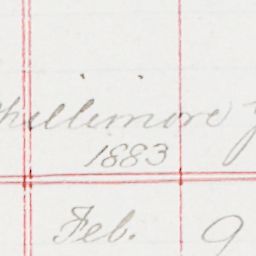 Phillimore
1883
Feb. 9